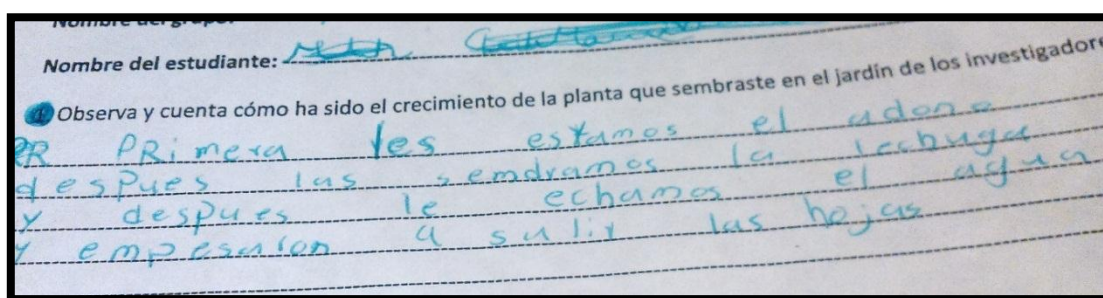 Nombre del grupo:
Nombre del estudiante:
1 Observa y cuenta cómo ha sido el crecimiento de la planta que sembraste en el jardín de los investigadore
PR PRimera les estamos el adono
despues las semdramos la lechuga
y despues le echamos el agua
y empesaron a salir las hojas